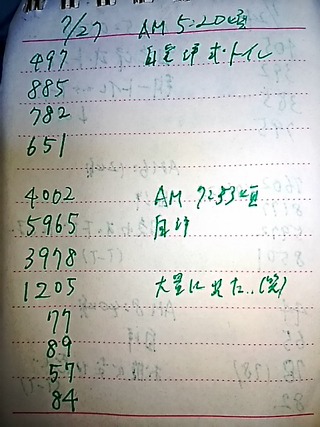 7/27 AM 5:20頃
497 自宅 トイレ
885
782
651
4002 AM 7:53頃
5965 自
3978
1205 大量に出た..(笑)
77
89
57
84